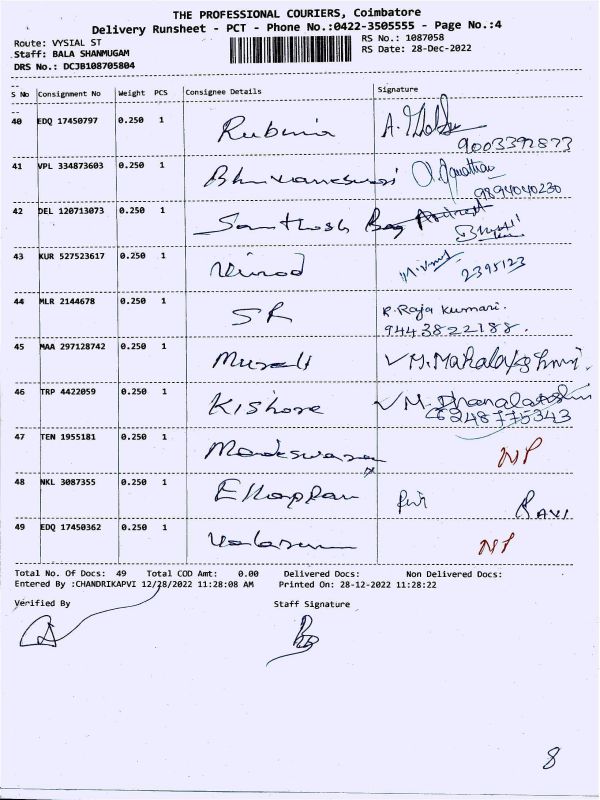 THE PROFESSIONAL COURIERS, Coimbatore
Delivery Runsheet - PCT - Phone No.:0422-3505555 - Page No.:4
Route: VYSIAL ST RS No.: 1087058
Staff: BALA SHANMUGAM RS Date: 28-Dec-2022
DRS No.: DCJB108705804
S No Consignment No Weight PCS Consignee Details Signature
40 EDQ 17450797 0.250 1 Rubinia
9003392873
41 VPL 334873603 0.250 1 Bhuvaneswari
9894040230
42 DEL 120713073 0.250 1 Santhosh Bag
43 KUR 527523617 0.250 1 Vinod 2395123
44 MLR 2144678 0.250 1 SR R. Raja Kumari.
9443822188.
45 MAA 297128742 0.250 1 Murali M. Mahalakshmi.
46 TRP 4422059 0.250 1 Kishore M. Dhanalakshmi
6248775343
47 TEN 1955181 0.250 1 NP
48 NKL 3087355 0.250 1 Ellappan RAVI
49 EDQ 17450362 0.250 1 NP
Total No. Of Docs: 49 Total COD Amt: 0.00 Delivered Docs: Non Delivered Docs:
Entered By :CHANDRIKAPVI 12/28/2022 11:28:08 AM Printed On: 28-12-2022 11:28:22
Verified By Staff Signature
8